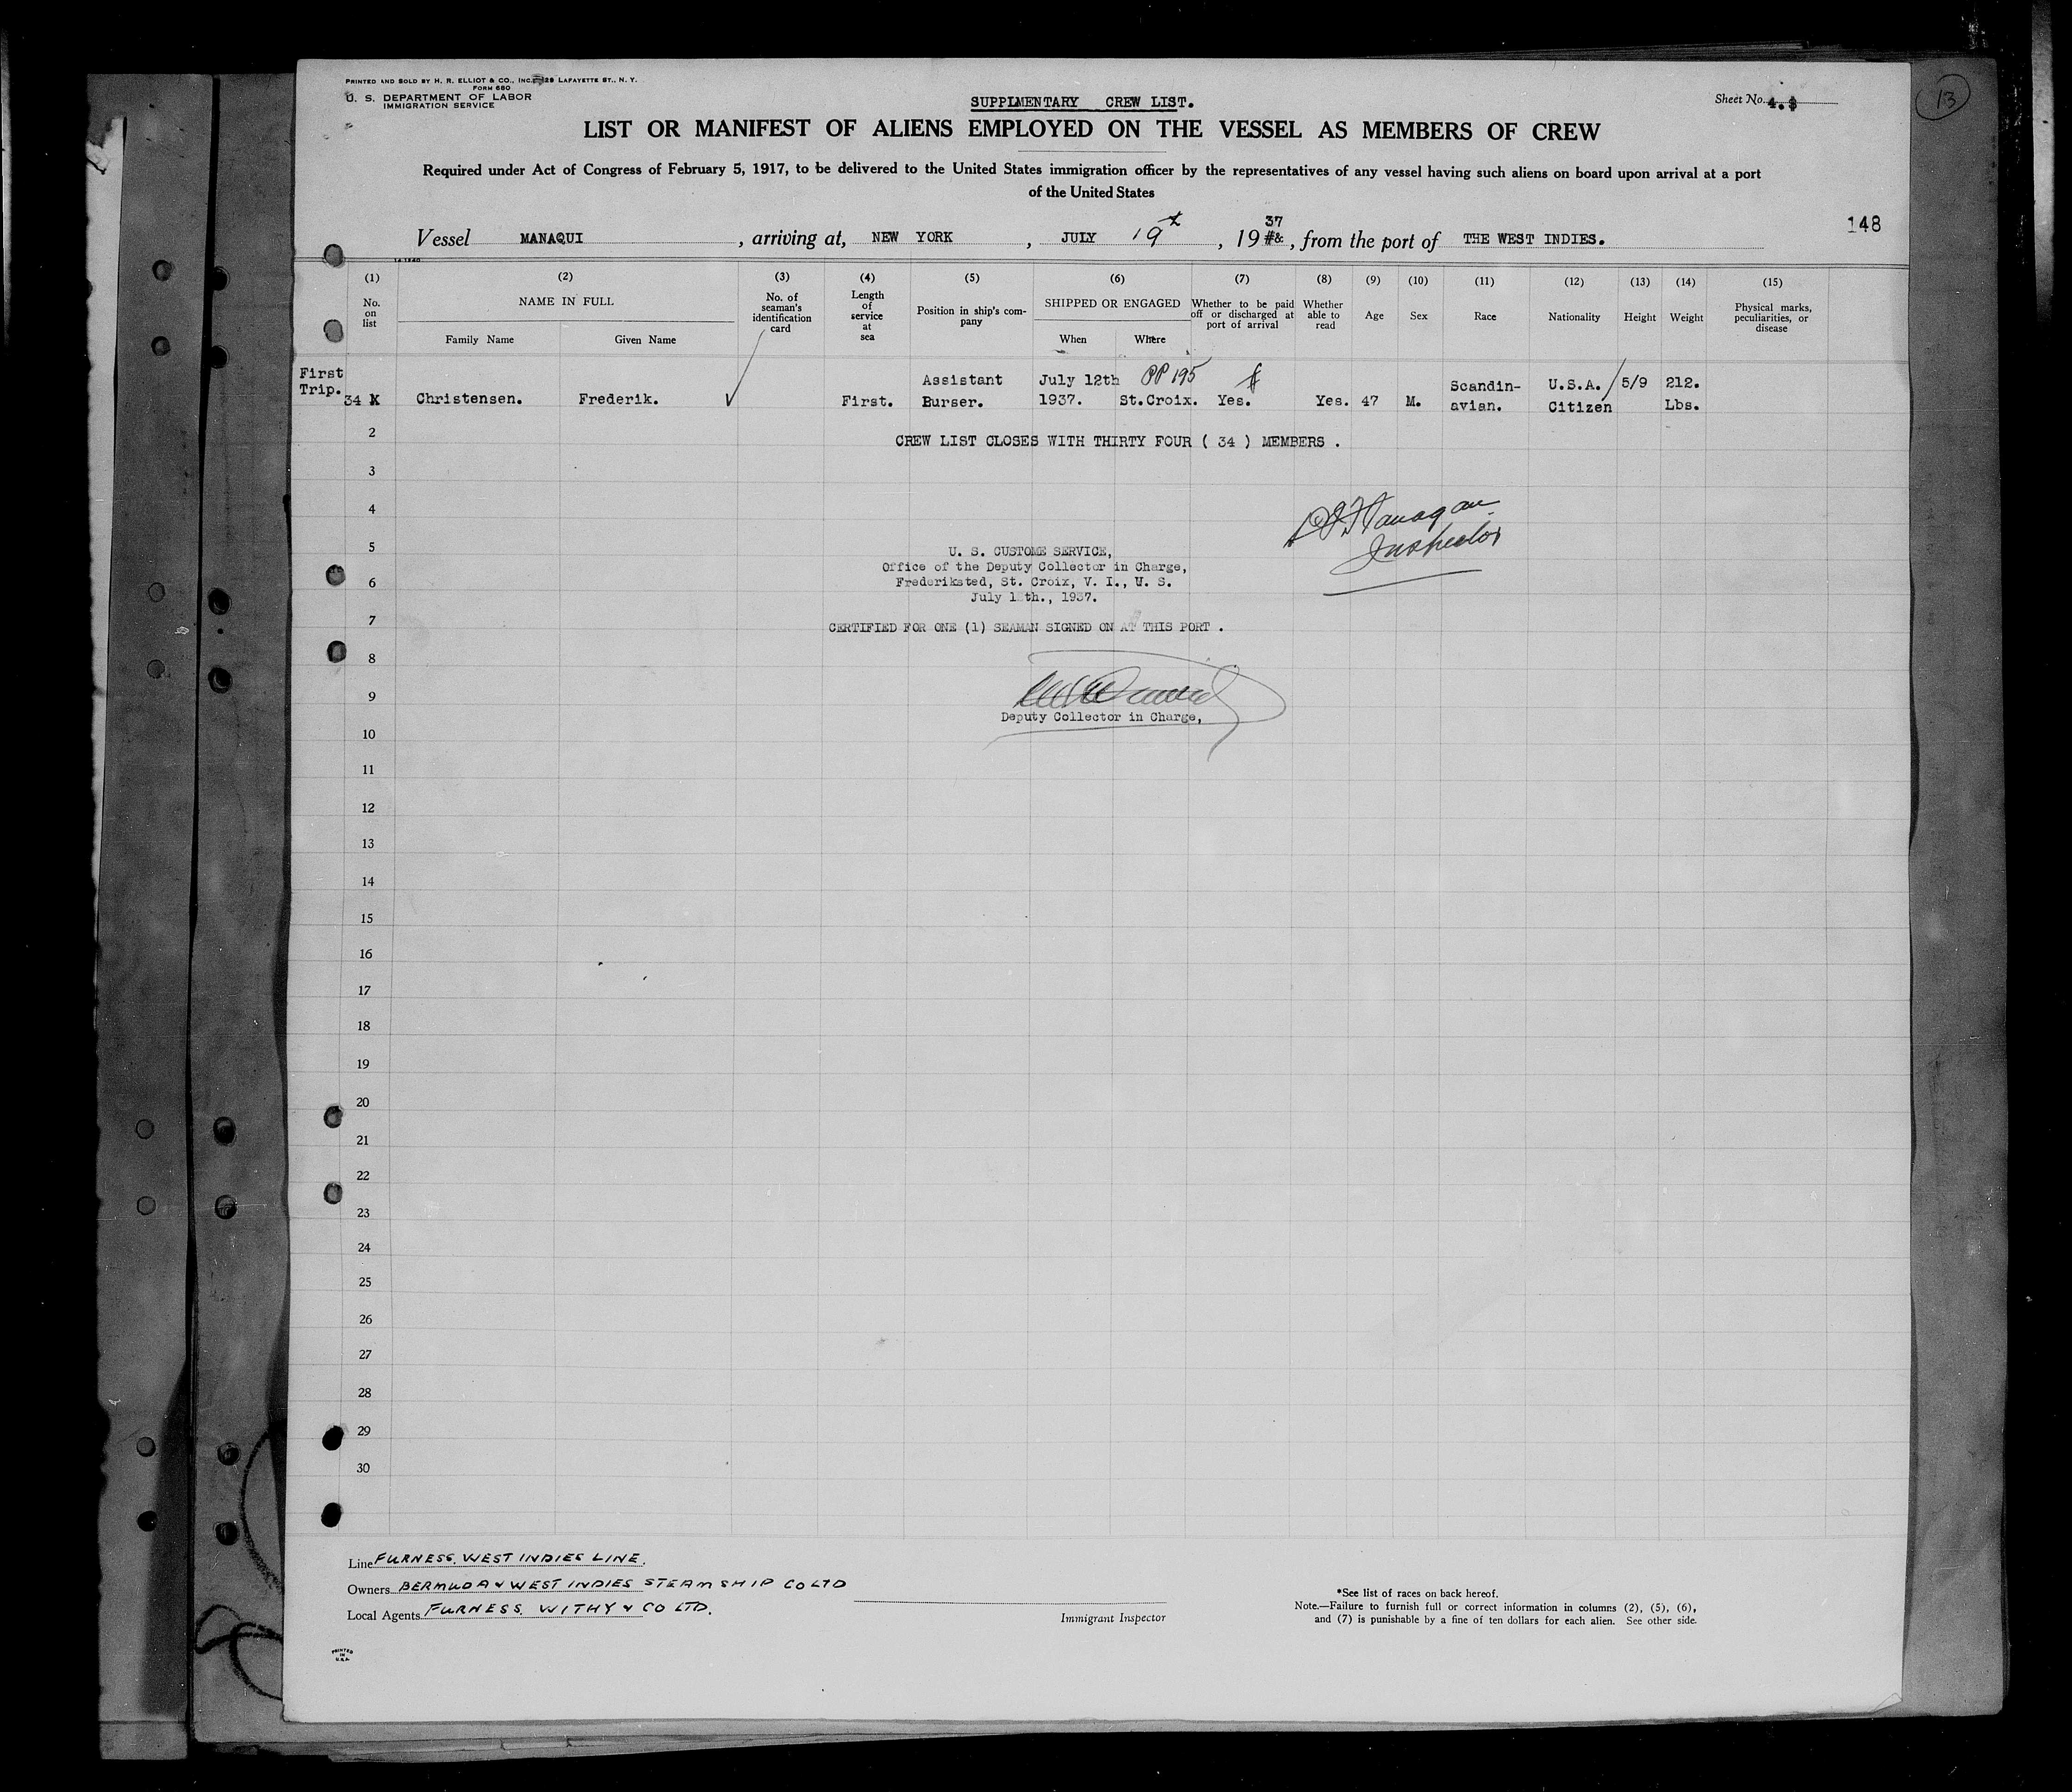 PRINTED AND SOLD BY H. R. ELLIOT & CO., INC. LAFAYETTE ST., N. Y.
FORM 680
U. S. DEPARTMENT OF LABOR
IMMIGRATION SERVICE
SUPPLMENTARY CREW LIST.
Sheet No. 4.
13
LIST OR MANIFEST OF ALIENS EMPLOYED ON THE VESSEL AS MEMBERS OF CREW
Required under Act of Congress of February 5, 1917, to be delivered to the United States immigration officer by the representatives of any vessel having such aliens on board upon arrival at a port
of the United States
148
Vessel MANAQUI, arriving at, NEW YORK, JULY 19th, 19 37, from the port of THE WEST INDIES.
(1) (2) (3) (4) (5) (6) (7) (8) (9) (10) (11) (12) (13) (14) (15)
No. on list
NAME IN FULL
Family Name Given Name
No. of seaman's identification card
Length of service at sea
Position in ship's company
SHIPPED OR ENGAGED
When Where
Whether to be paid off or discharged at port of arrival
Whether able to read
Age
Sex
Race
Nationality
Height
Weight
Physical marks, peculiarities, or disease
First Trip. 34 Christensen. Frederik. First. Assistant Burser. July 12th 1937. PP 195 St.Croix. Yes. Yes. 47 M. Scandin-avian. U.S.A. Citizen 5/9 212. Lbs.
2
CREW LIST CLOSES WITH THIRTY FOUR ( 34 ) MEMBERS .
3
4
Flanagan
Inspector
5
U. S. CUSTOME SERVICE,
Office of the Deputy Collector in Charge,
6
Frederiksted, St. Croix, V. I., U. S.
July th., 1937.
7
CERTIFIED FOR ONE (1) SEAMAN SIGNED ON AT THIS PORT .
8
9
Deputy Collector in Charge,
10
11
12
13
14
15
16
17
18
19
20
21
22
23
24
25
26
27
28
29
30
Line FURNESS. WEST INDIES LINE.
Owners BERMUDA & WEST INDIES STEAMSHIP CO LTD
Local Agents FURNESS. WITHY & CO LTD.
Immigrant Inspector
*See list of races on back hereof.
Note.—Failure to furnish full or correct information in columns (2), (5), (6),
and (7) is punishable by a fine of ten dollars for each alien. See other side.
PRINTED
IN
U.S.A.